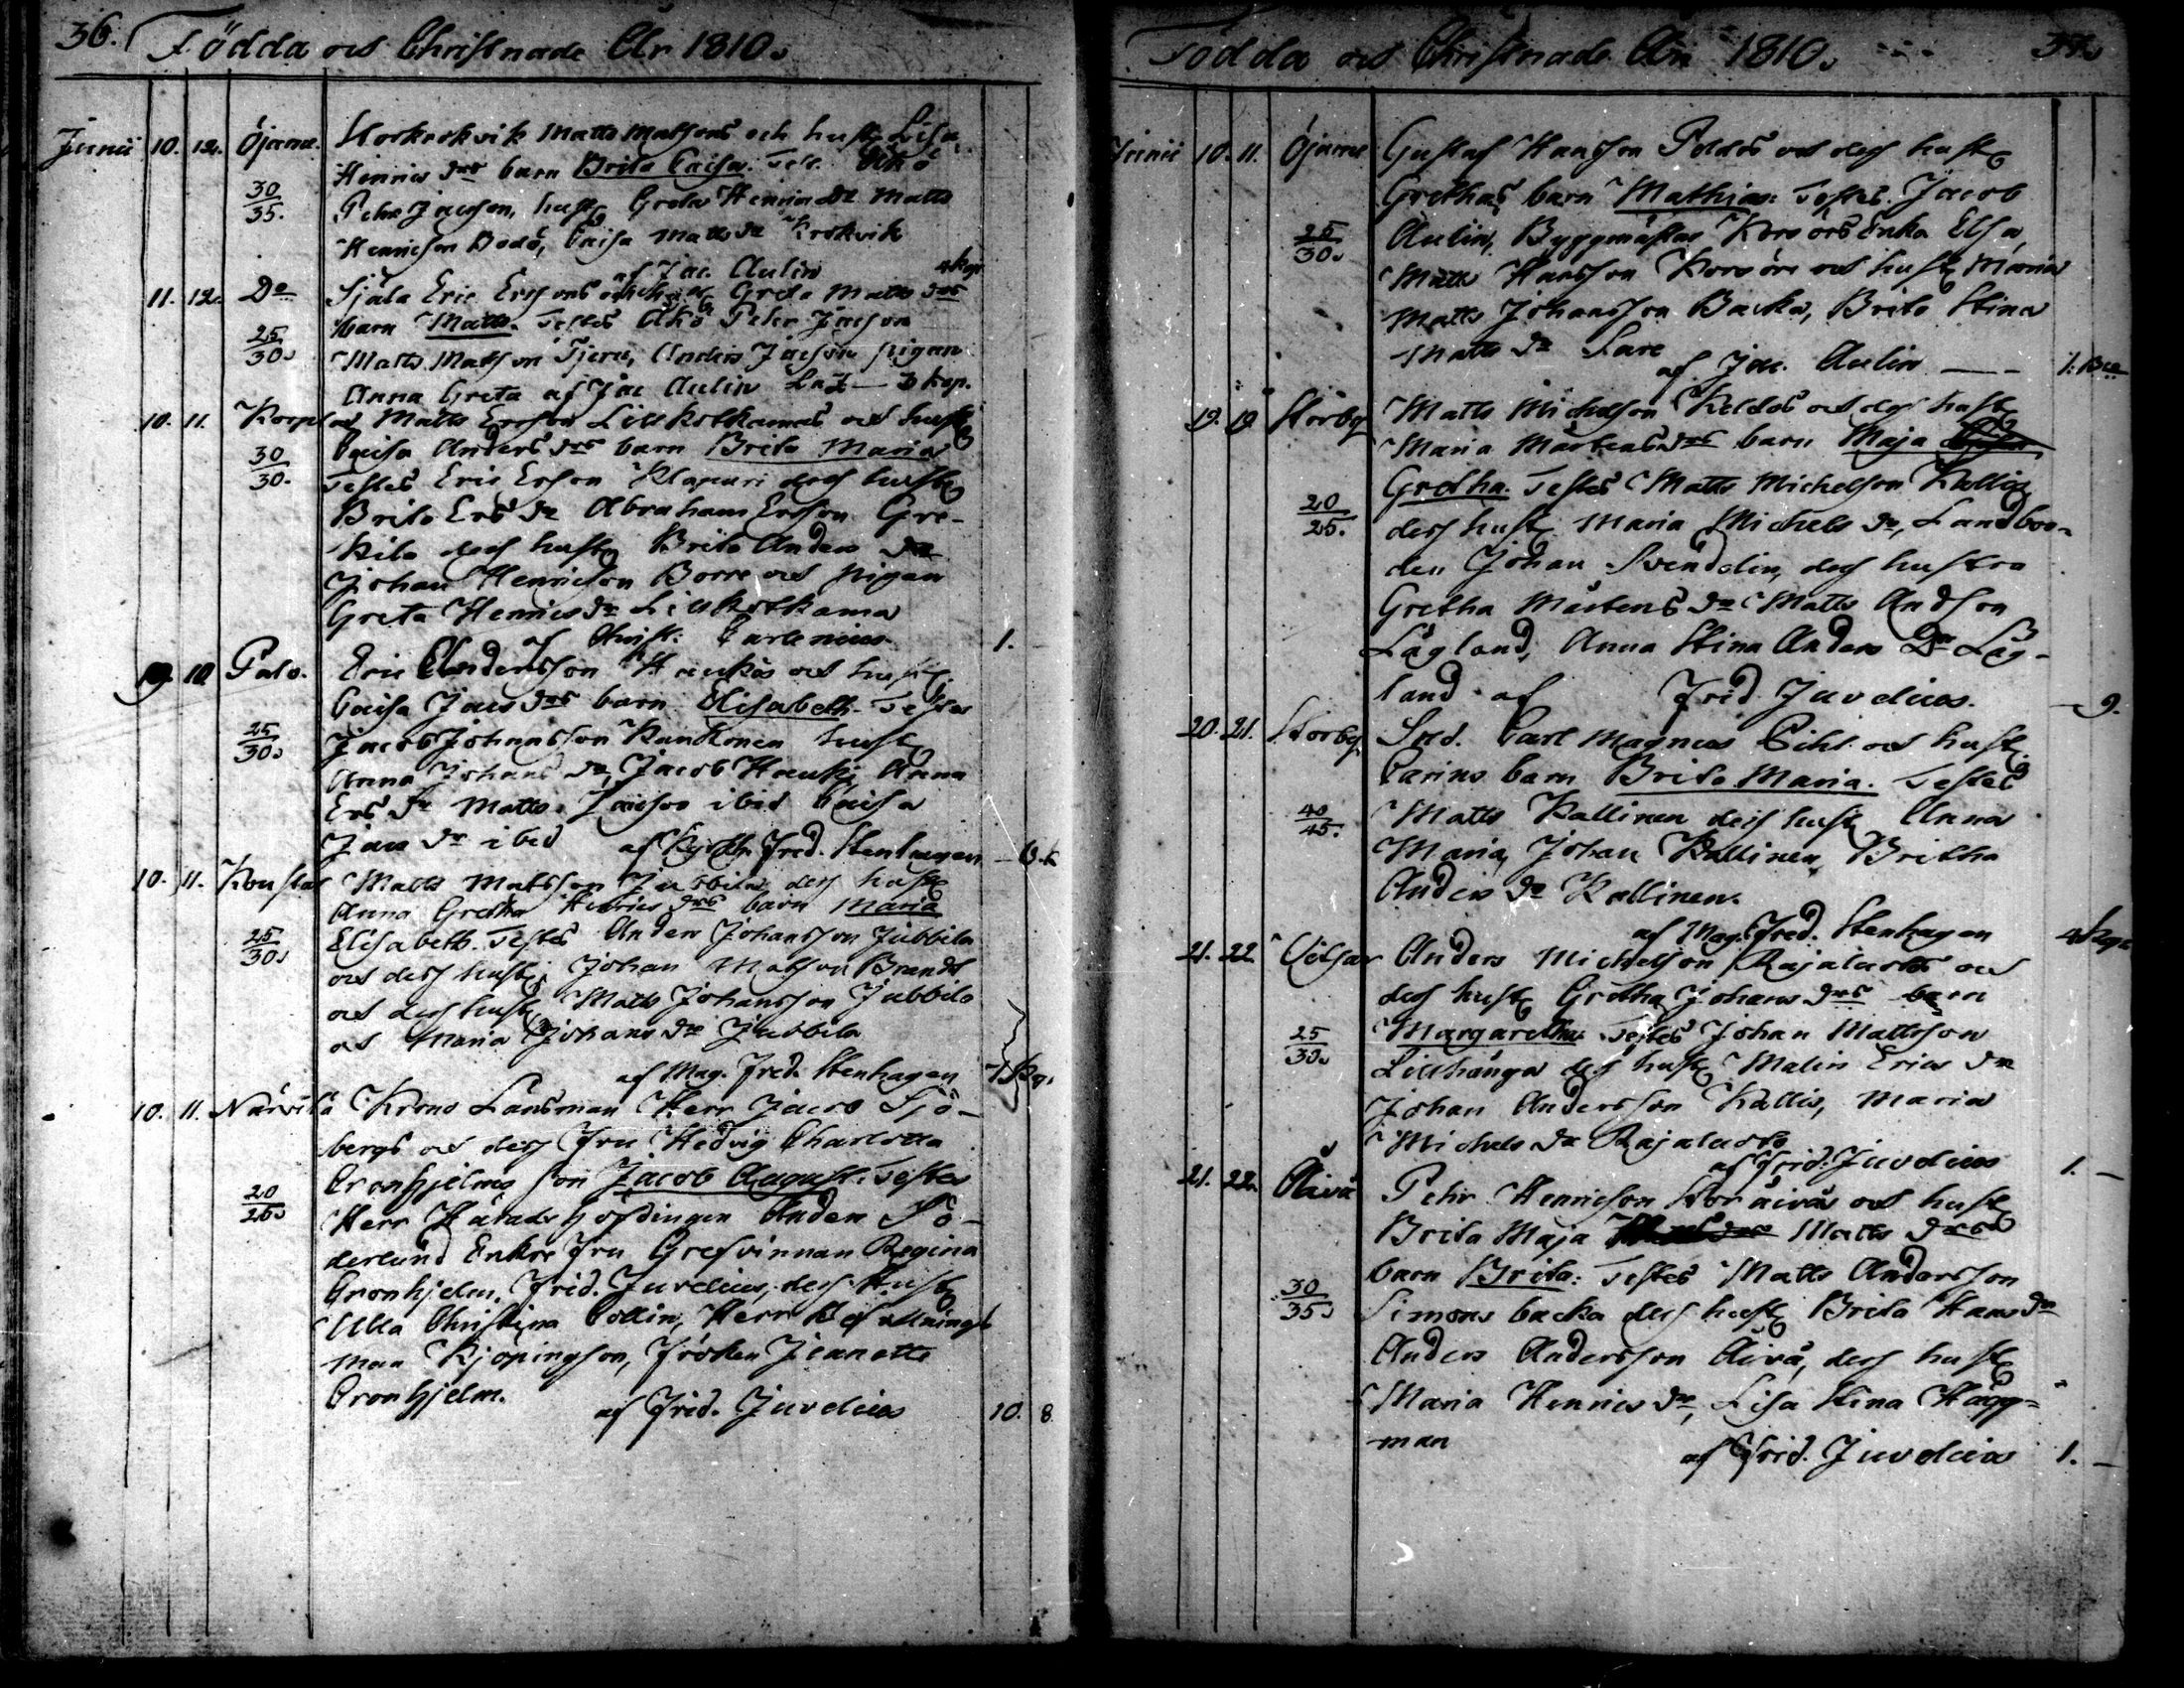 36. Födda och Christnade År 1810.
Junii 10. 12. Öjarne. Storkorkvik Matts Matssons och hust. Lisa
Henrics drs barn Brita Caisa. Test. Åkö
30/35. Pehr Jacsson, hust. Greta Henricsdr Matts
Henricson Bodö, Caisa Matts dr Korkvik
af Jac. Aulin 4 kop
11. 12. Do Sjåla Eric Ersons och hust. Greta Matts drs
25/30. barn Matts. Testes Åkö Pehr Jacson
Matts Matsson Tjeru, Anders Jacson pigan
Anna Greta af Jac Aulin — 3 kop.
10. 11. Matts Ersson Lillkorkamas och hust.
30/30. Caisa Anders drs barn Brita Maria
Testes Eric Erson Klapuri dess hust.
Brita Ers dr Abraham Erson Gre-
kila dess hust. Brita Anders dr
Johan Henricson Borre och pigan
Greta Henrics dr Lillkorkama
af Christ. Carlenius 1.
9. 10. Palo. Eric Andersson Haukos och hust.
Caisa Jacs drs barn Elisabeth. Testes
25/30. Jacob Johansson hust.
Anna Johans dr, Jacob Hauki, Anna
Ers dr Matts Jacsson ibid Caisa
Jacs dr ibid af Fred. Stenhagen
10. 11. Matts Matsson Jubbila dess hust.
Anna Gretha Henrics drs barn Maria
25/30. Elisabeth. Testes Anders Johansson Jubbila
och dess hust. Johan Matsson Brandt
och dess hust. Matts Johansson Jubbila
och Maria Johans dr Jubbila
af Mag. Fred. Stenhagen
10. 11. Närvilä Krono Länsman Herr Jacob Sjö-
bergs och dess Fru Hedvig Charlotta
Cronhjelms son Jacob August. Testes
20/25. Herr Härads höfdingen Anders Sö-
derlund Enkre Fru Grefvinnan Regina
Cronhjelm, Frid. Juvelius, dess Hust.
Ulla Christina Collin, Herr Befallnings
man Kjöpingson, Fröken Jeanette
Cronhjelm. af Frid. Juvelius 10. 8.
Födda och Christnade År 1810. 37.
Junii 10. 11. Öjarne Gustaf Hansson Poldos och dess hust.
Grethas barn Mathias. Testes. Jacob
25/30. Aulin, Byggmästar Korsörs Enka Elsa,
Matts Hansson Korsöre och hust. Maria
Matts Johansson Backa, Brita Stina
Matts dr Sare
af Jac. Aulin
19. 19. Storby Matts Michelson Keldos och dess hust.
Maria Mårtens drs barn Maja
20/25. Gretha. Testes Matts Michelson Kallis
dess hust. Maria Michels dr, Landboe-
den Johan Svendelin, dess hustru
Gretha Mårtens dr Matts Andson
Lågland, Anna Stina Anders Dr Låg-
land af Frid Juvelius. 9.
20. 21. Storby Sold. Carl Magnus Pihl och hust.
Carins barn Brita Maria. Testes
40/45. Matts Kallinen dess hust. Anna
Maria, Johan Kallinen, Britha
Anders dr Kallinen.
af Mag. Fred. Stenhagen 4 kop
21. 22. Anders Michelson Rajalas och
dess hust. Gretha Johans drs barn
25/30. Margaretha. Testes Johan Mattsson
Lillhånga dess hust. Malin Erics dr
Johan Andersson Kallis, Maria
Michels dr
af Frid. Juvelius 1. —
21. 22. Åivå Pehr Henricson Storåivås och hust.
Brita Maja Matts drs
barn Brita. Testes Matts Andersson
30/35. Simons backa dess hust. Brita Hans dr
Anders Andersson Åivå, dess hust.
Maria Henrics dr, Lisa Stina Hägg-
man af Frid. Juvelius 1. —